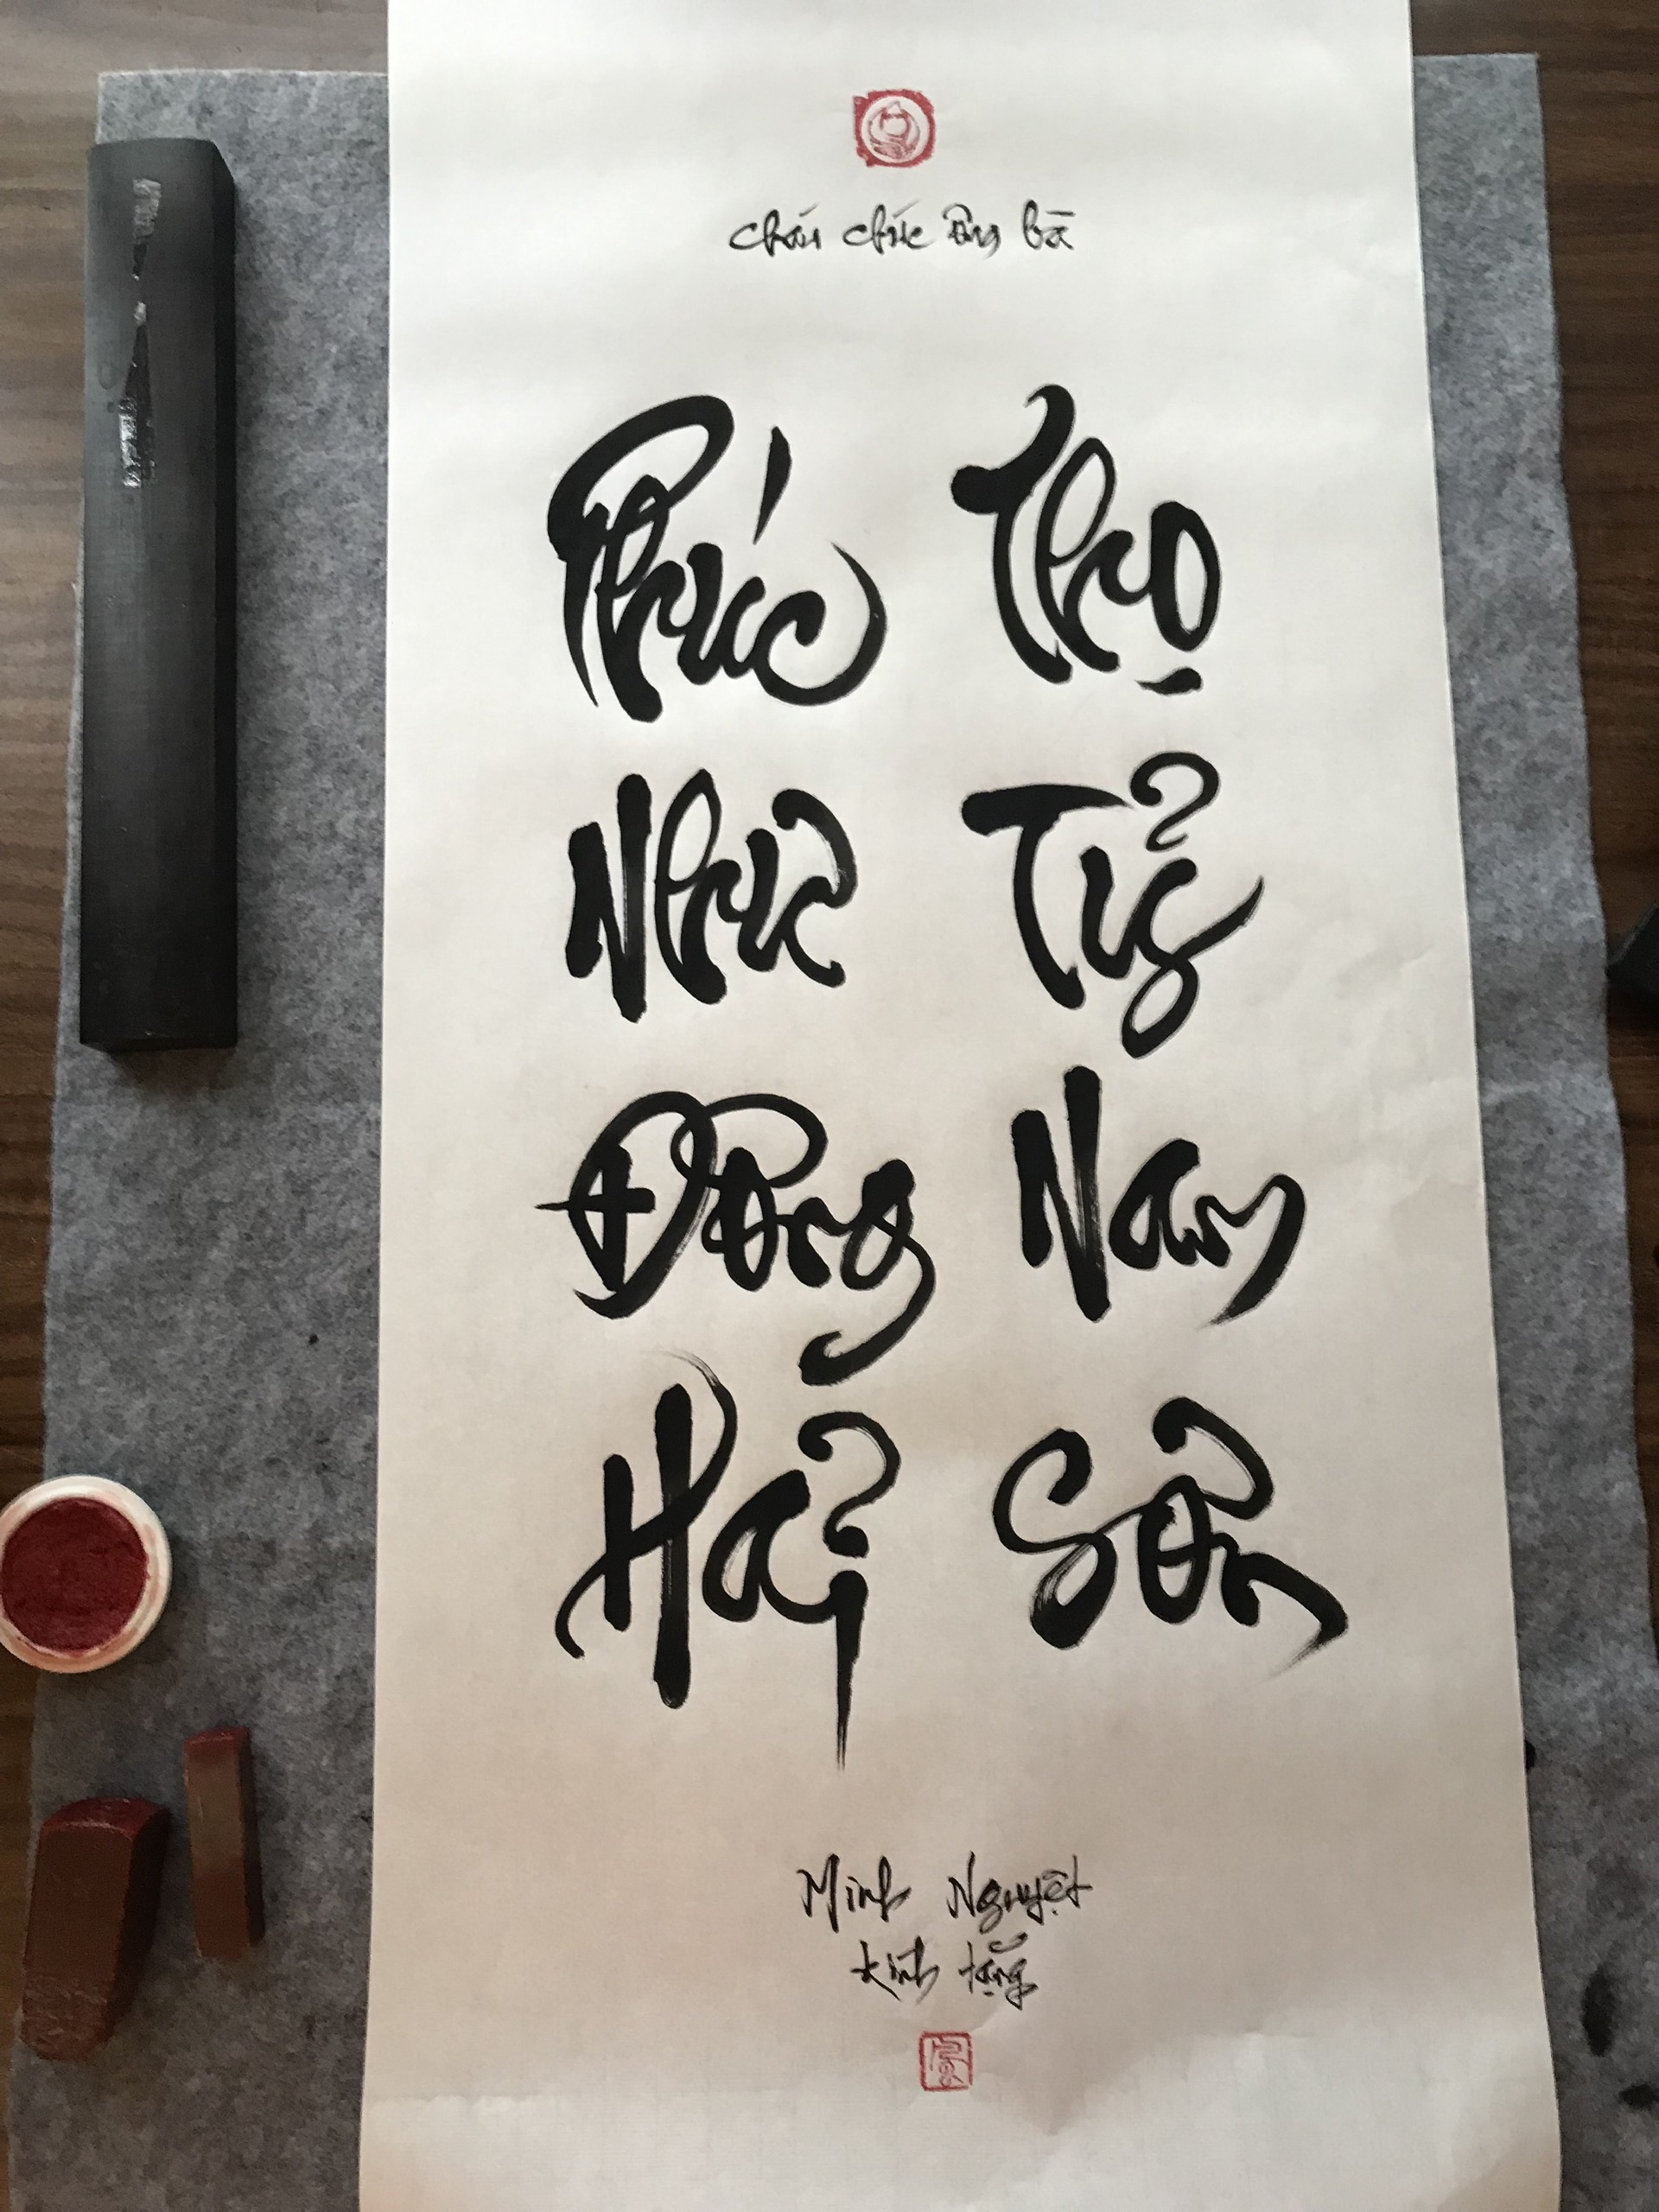 cháu chúc ông bà
Phúc Như Đông Hải
Thọ Tỷ Nam Sơn
Minh Nguyệt
kính tặng